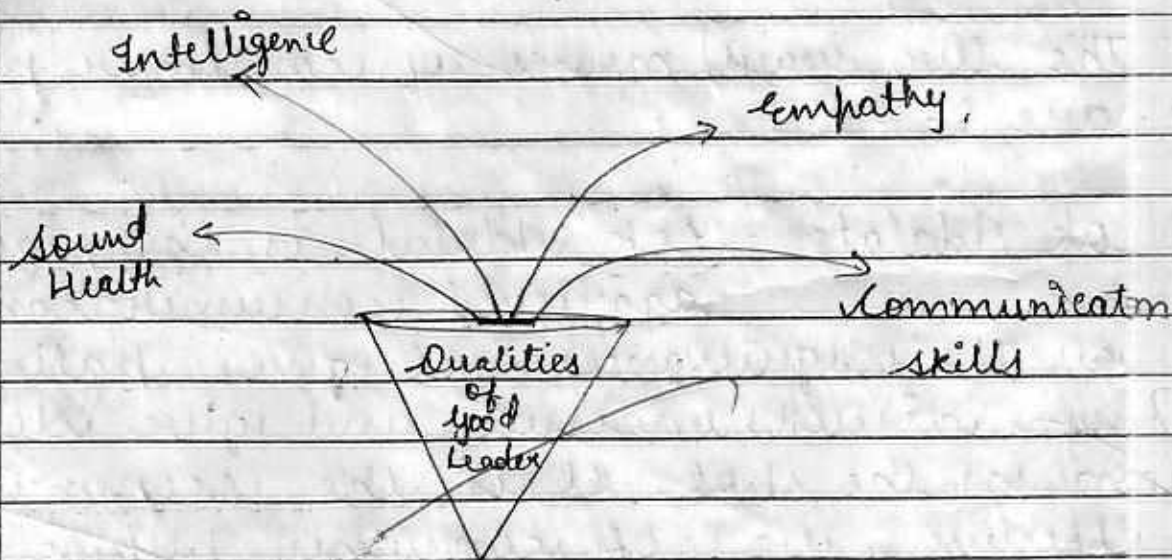 Intelligence
Empathy,
Sound
Health
Communicatn
skills
Qualities
of
Good
Leader